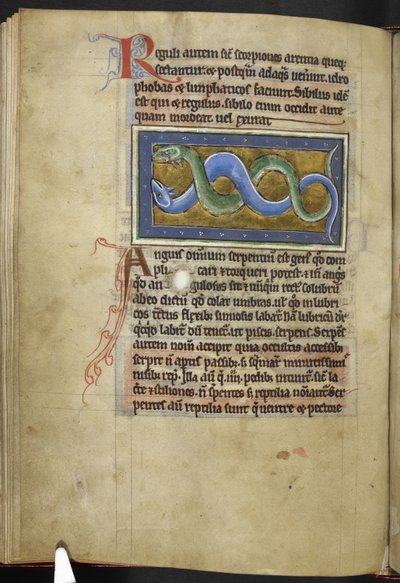 Reguli autem sic̄ scorpiones arentia queq;
sectantur. et postq̄m ad aq̄s uenint. idro
phobas et limphaticos faciunt. Sibilus idē
est qui et regulus. sibilo enim occidit ante
quam mordeat uel exurat
Anguis omnium serpentiū est gen̄ qd̄ com
pli cari et torqueri potest. et in angs̄
qd̄ an gulosus sit et nūq̄m rect̄. colubrū
ab eo dictū qd̄ colat umbras. ul̓ qd̄ in lubri
cos tractus flexib; sinuosis labat̄. Nā lubricū dr̄
qcq̄d labit̄ dū tenet̄. ut piscis. serpens. Serpēs
autem nom̄ accepit quia occultis accessib;
serpit n̄ aptis passib; s; sq̄mar̄ minutissimis
nisib; rep̄. Illa aū q̄ .iiii. pedib; nitunt̄. sic̄ la
c̄te et stiliones. n̄ spentes s; reptilia noīant̄. Ser
pentes aū reptilia sunt q̄ uentre et pectore